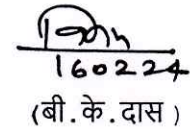 160224
(बी.के.दास)